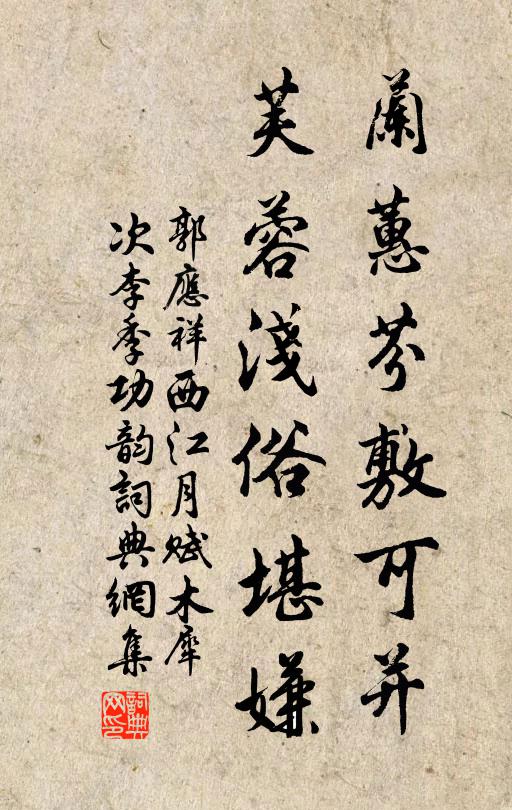 蘭蕙芬敷可并
芙蓉淺俗堪嫌
郭應祥西江月賦木犀
次李季功韵詞典網集
詞典网印